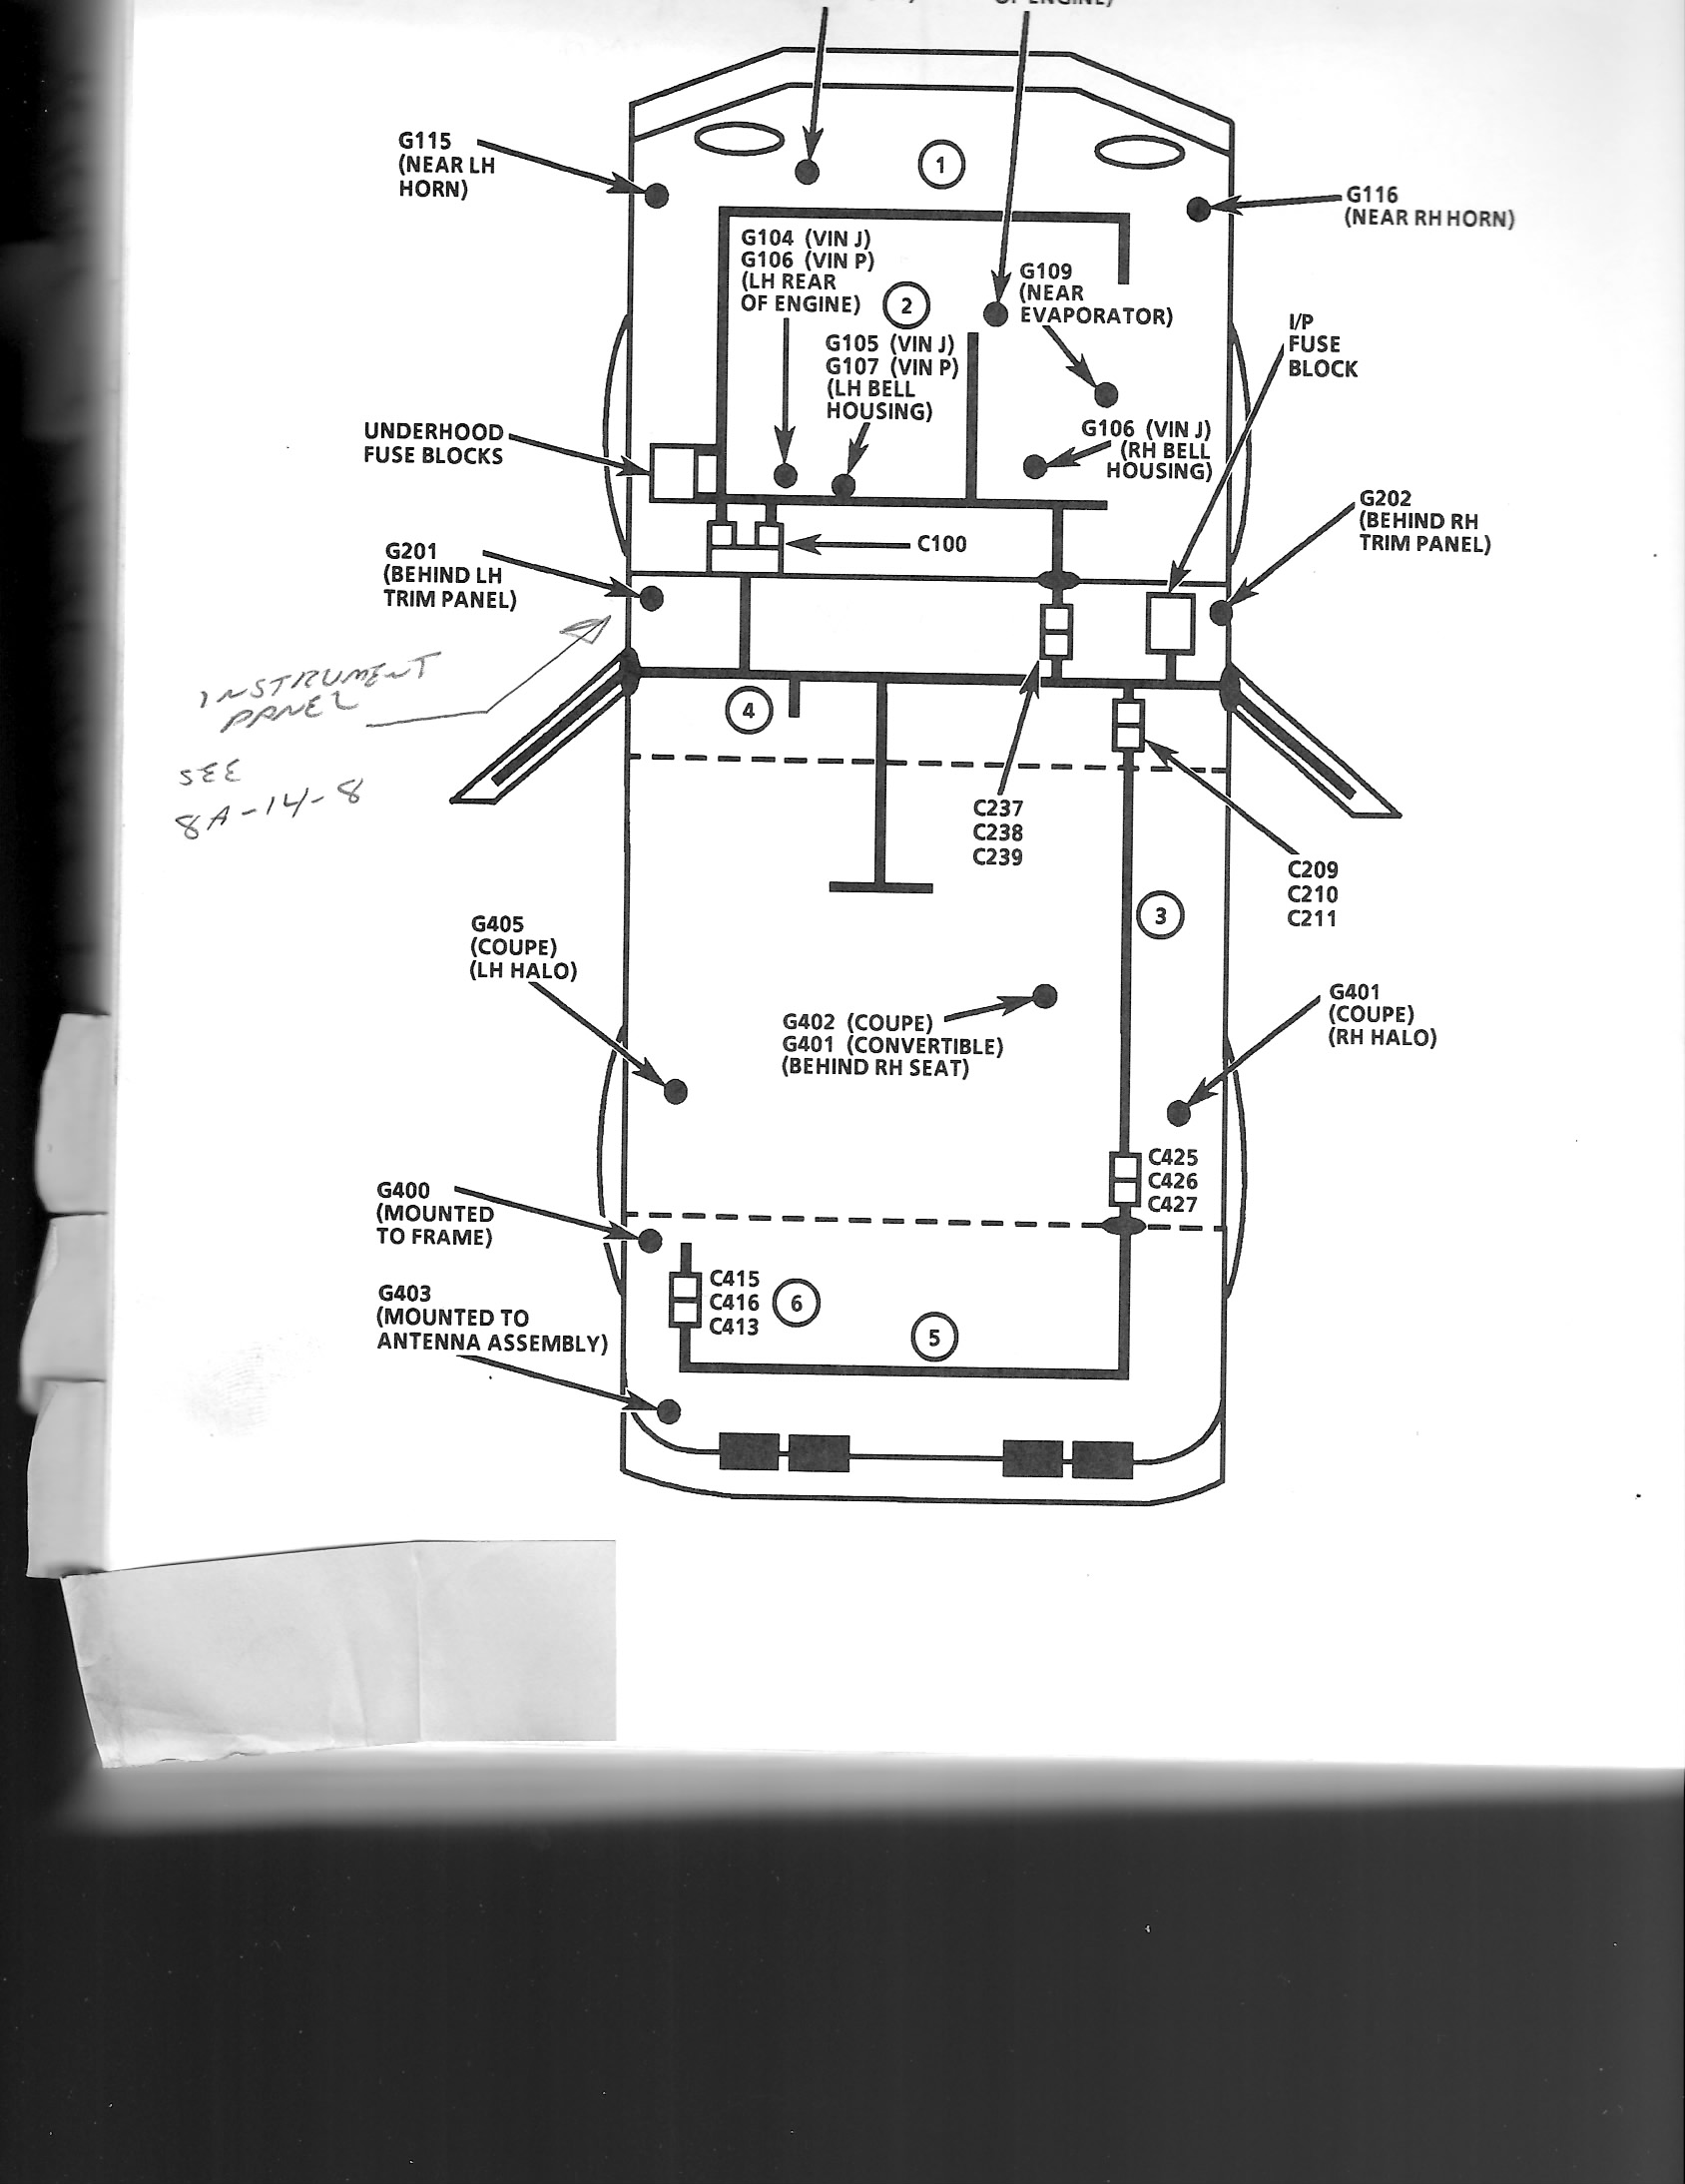 OF ENGINE)
G115
(NEAR LH
HORN)
1
G116
(NEAR RH HORN)
G104 (VIN J)
G106 (VIN P)
(LH REAR
OF ENGINE)
2
G109
(NEAR
EVAPORATOR)
I/P
FUSE
BLOCK
G105 (VIN J)
G107 (VIN P)
(LH BELL
HOUSING)
UNDERHOOD
FUSE BLOCKS
G106 (VIN J)
(RH BELL
HOUSING)
G202
(BEHIND RH
TRIM PANEL)
C100
G201
(BEHIND LH
TRIM PANEL)
INSTRUMENT
PANEL
SEE
8A-14-8
4
C237
C238
C239
C209
C210
C211
3
G405
(COUPE)
(LH HALO)
G402 (COUPE)
G401 (CONVERTIBLE)
(BEHIND RH SEAT)
G401
(COUPE)
(RH HALO)
C425
C426
C427
G400
(MOUNTED
TO FRAME)
C415
C416
C413
6
5
G403
(MOUNTED TO
ANTENNA ASSEMBLY)